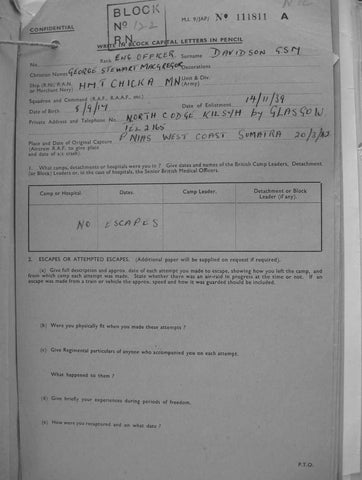 CONFIDENTIAL
BLOCK
No 122
R.N.
M.I. 9/JAP/ No 111811 A
WRITE IN BLOCK CAPITAL LETTERS IN PENCIL
No. Rank ENG OFFICER Surname DAVIDSON GSM
Christian Names GEORGE STEWART MACGREGOR Decorations
Ship (R.N., R.A.N. or Merchant Navy) HMT CHICKA MN Unit & Div. (Army)
Squadron and Command (R.A.F., R.A.A.F., etc.)
Date of Birth 5/9/14 Date of Enlistment 14/11/39
Private Address and Telephone No. NORTH LODGE KILSYTH by GLASGOW
Place and Date of Original Capture P NIAS WEST COAST SUMATRA 20/3/42
(Aircrew R.A.F. to give place and date of a/c crash).
1. What camps, detachments or hospitals were you in ? Give dates and names of the British Camp Leaders, Detachment (or Block) Leaders or, in the case of hospitals, the Senior British Medical Officers.
Camp or Hospital. Dates. Camp Leader. Detachment or Block Leader (if any).
NO ESCAPES
2. ESCAPES OR ATTEMPTED ESCAPES. (Additional paper will be supplied on request if required).
(a) Give full description and approx. date of each attempt you made to escape, showing how you left the camp, and from which camp each attempt was made. State whether there was an air-raid in progress at the time or not. If an escape was made from a train or vehicle the approx. speed and how it was guarded should be included.
(b) Were you physically fit when you made these attempts ?
(c) Give Regimental particulars of anyone who accompanied you on each attempt.
What happened to them ?
(d) Give briefly your experiences during periods of freedom.
(e) How were you recaptured and on what date ?
P.T.O.